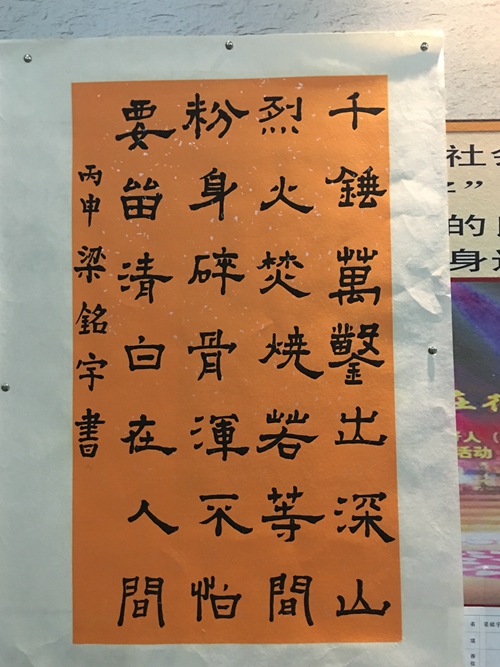 千錘萬鑿出深山
烈火焚燒若等間
粉身碎骨渾不怕
要畱清白在人間
丙申梁銘宇書
社会
的
身
活动